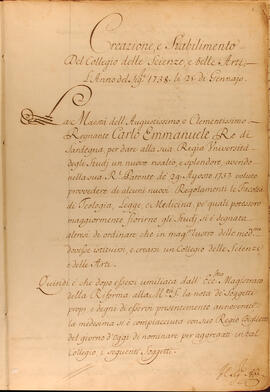 Creazione, e Stabilimento
Del Collegio delle Scienze, e belle Arti
L'Anno del Sig.re 1738. li 25 di Gennajo.
La Maestà dell'Augustissimo, e Clementissimo
Regnante Carlo Emmanuele Re di
Sardegna, per dare alla sua Regia Università
degli Studj un nuovo risalto, e splendore, avendo
nella sua R.e Patente de' 29 Agosto 1737 voluto
provvedere di alcuni nuovi Regolamenti le Facoltà
di Teologia, Legge, e Medicina, pe' quali potessero
maggiormente fiorirvi gli Studj si è degnata
altresì di ordinare che in
dovesse istituirsi, e crearsi un Collegio delle Scienze
e delle Arti.
Quindi è che dopo essersi umiliata dall' Magistrato
della Riforma alla M.tà S. la nota de' Soggetti
proprj, e degni di esservi presentemente annoverati
la medesima si è compiacciuta con suo Regio Viglietto
del giorno d'oggi di nominare per aggregati in tal
Collegio i seguenti Soggetti.